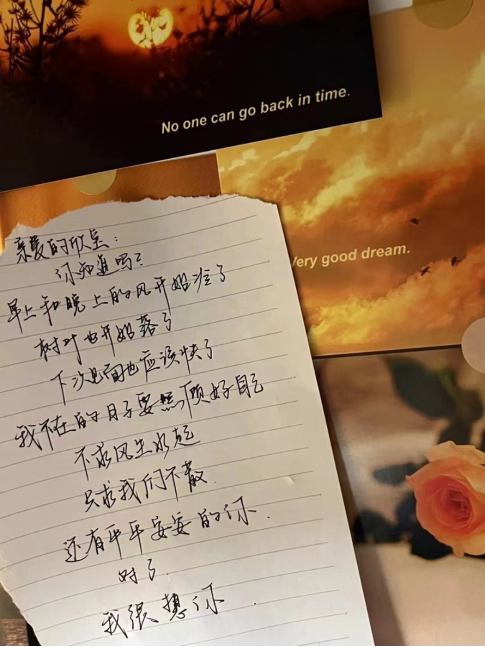 No one can go back in time.
Very good dream.
亲爱的欣皇:
你知道吗?
早上和晚上的风开始凉了
树叶也开始落了
下次见面也应该快了
我不在的日子要照顾好自己
不求风生水起
只求我们不散
还有平平安安的你.
对了.
我很想你.